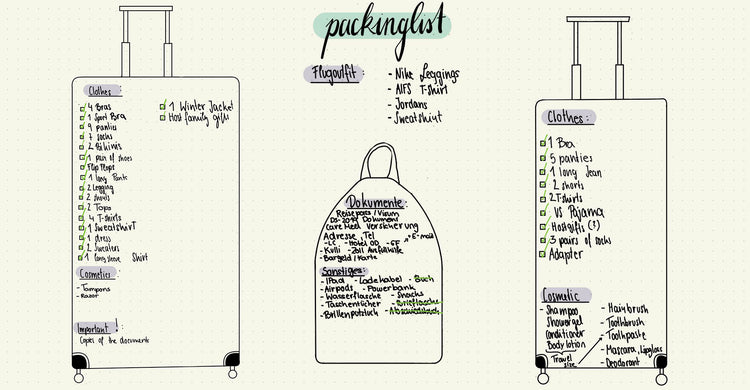 packinglist
Flugoutfit:
- Nike Leggings
- AIFS T-shirt
- Jordans
- Sweatshirt
Clothes:
4 Bras
1 Sport Bra
9 panties
7 socks
2 Bikinis
1 pair of shoes
Flip Flops
1 long Pants
2 Legging
2 shorts
2 Tops
4 T-shirts
1 Sweatshirt
1 dress
2 Sweaters
1 long sleeve Shirt
1 Winter Jacket
Host family gift
Cosmetics:
- Tampons
- Razor
Important!:
Copies of the documents
Dokumente:
Reisepass / Visum
DS-2019 Dokument
Care Med Versicherung
Adresse, Tel, + E-mail
- LC - Hotel OD - GF
- Kulli - Zoll Ausfüllhilfe
- Bargeld / Karte
Sonstiges:
- IPad - Ladekabel - Buch
- Airpods - Powerbank
- Wasserflasche - Snacks
- Taschentücher - Brieftasche
- Brillenputztuch
Clothes:
1 Bra
5 panties
1 long Jean
2 shorts
2 T-shirts
VS Pajama
Hostgifts (?)
3 pairs of socks
Adapter
Cosmetic
- Shampoo
Showergel
Conditioner
Bodylotion
Travel
size
- Hairbrush
- Toothbrush
- Toothpaste
- Mascara, Lipgloss
- Deodorant